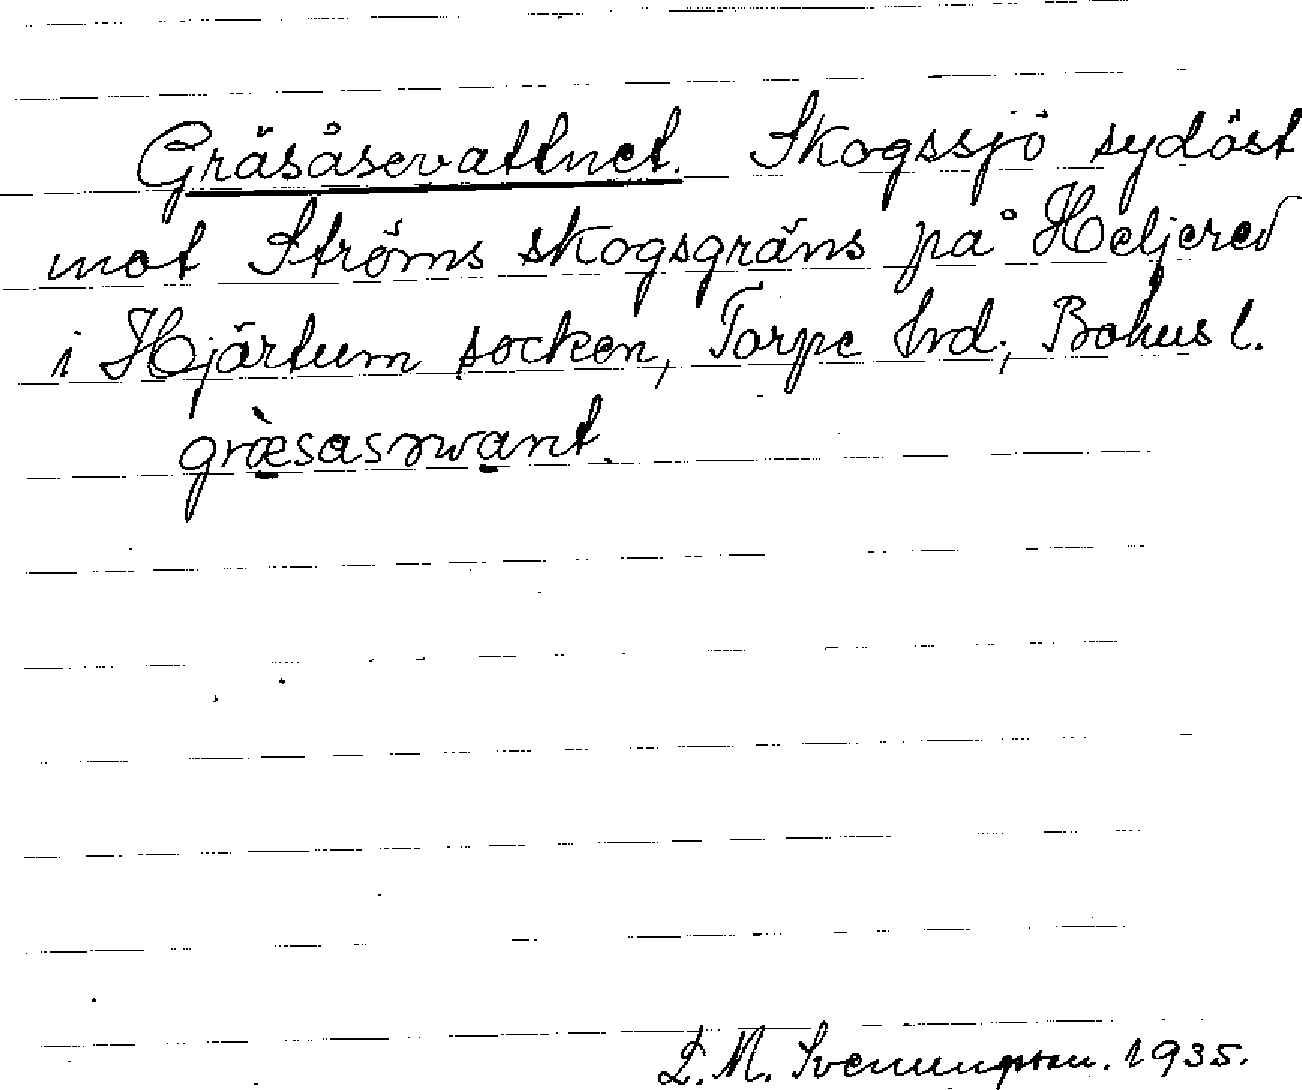 Gräsåsevattnet. Skogssjö sydöst
mot Ströms skogsgräns på Heljered
i Hjärtum socken, Torpe hrd., Bohusl.
græ̀sasrwant.
L. M. Svenungsson. 1935.